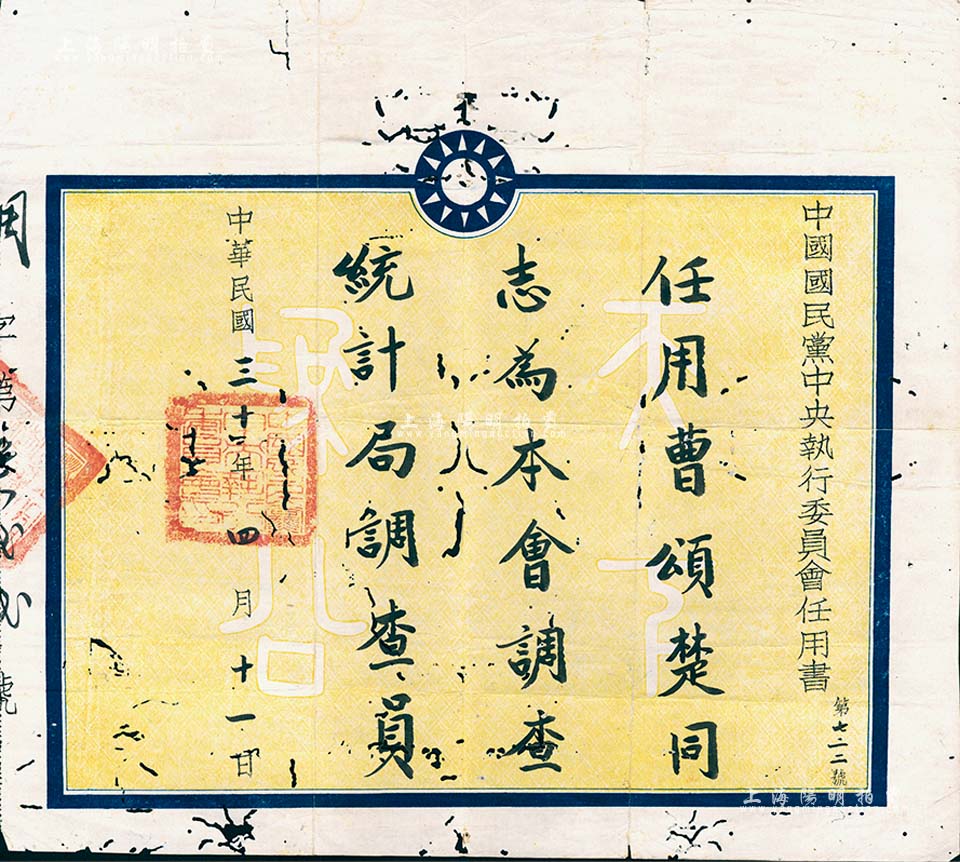 中國國民黨中央執行委員會任用書
第七二二號
任用曹頌楚同
志為本會調查
統計局調查員
中華民國三十二年四月十一日
天下為公
用
字第
號
上海陽明拍賣